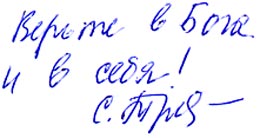 Верьте в Бога
и в себя!
С.